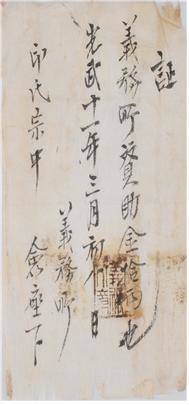 証
義務所資助金拾兩也
光武十一年三月初日
義務所
印氏宗中 僉座下